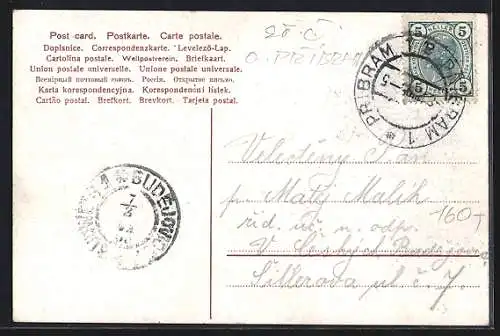 Post card. Postkarte. Carte postale.
Dopisnice. Correspondenzkarte. Levelező-Lap.
Cartolina postale. Weltpostverein. Briefkaart.
Union postale universelle. Unione postale universale.
Всемірный почтовый союзъ. Россія. Открытое письмо.
Karta korespondencyjna. Korespondenčni listek.
Cartão postal. Brefkort. Brevkort. Tarjeta postal.
28 č
O. PŘIBRAM
5 5
5 5
PŘIBRAM PRZIBRAM 1
BUDĚJOV
Velectěný Pan
p. Matěj Malík
160+
řid. uč. n. odpo.
V
Šillerova ul č. 7.